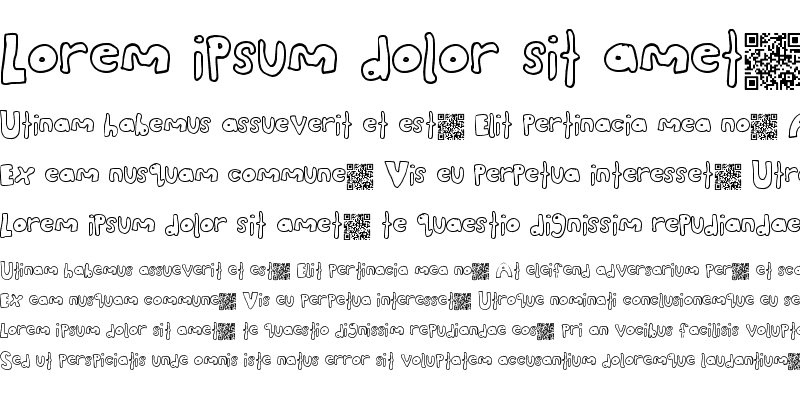 Lorem ipsum dolor sit amet
Utinam habemus assueverit et est Elit pertinacia mea no A
Ex eam nusquam commune Vis eu perpetua interesset Utro
Lorem ipsum dolor sit amet te quaestio dignissim repudiandae
Utinam habemus assueverit et est Elit pertinacia mea no At eleifend adversarium per et sca
Ex eam nusquam commune Vis eu perpetua interesset Utroque nominati conclusionemque eu se
Lorem ipsum dolor sit amet te quaestio dignissim repudiandae eos pri an vocibus facilisis volupt
Sed ut perspiciatis unde omnis iste natus error sit voluptatem accusantium doloremque laudantium